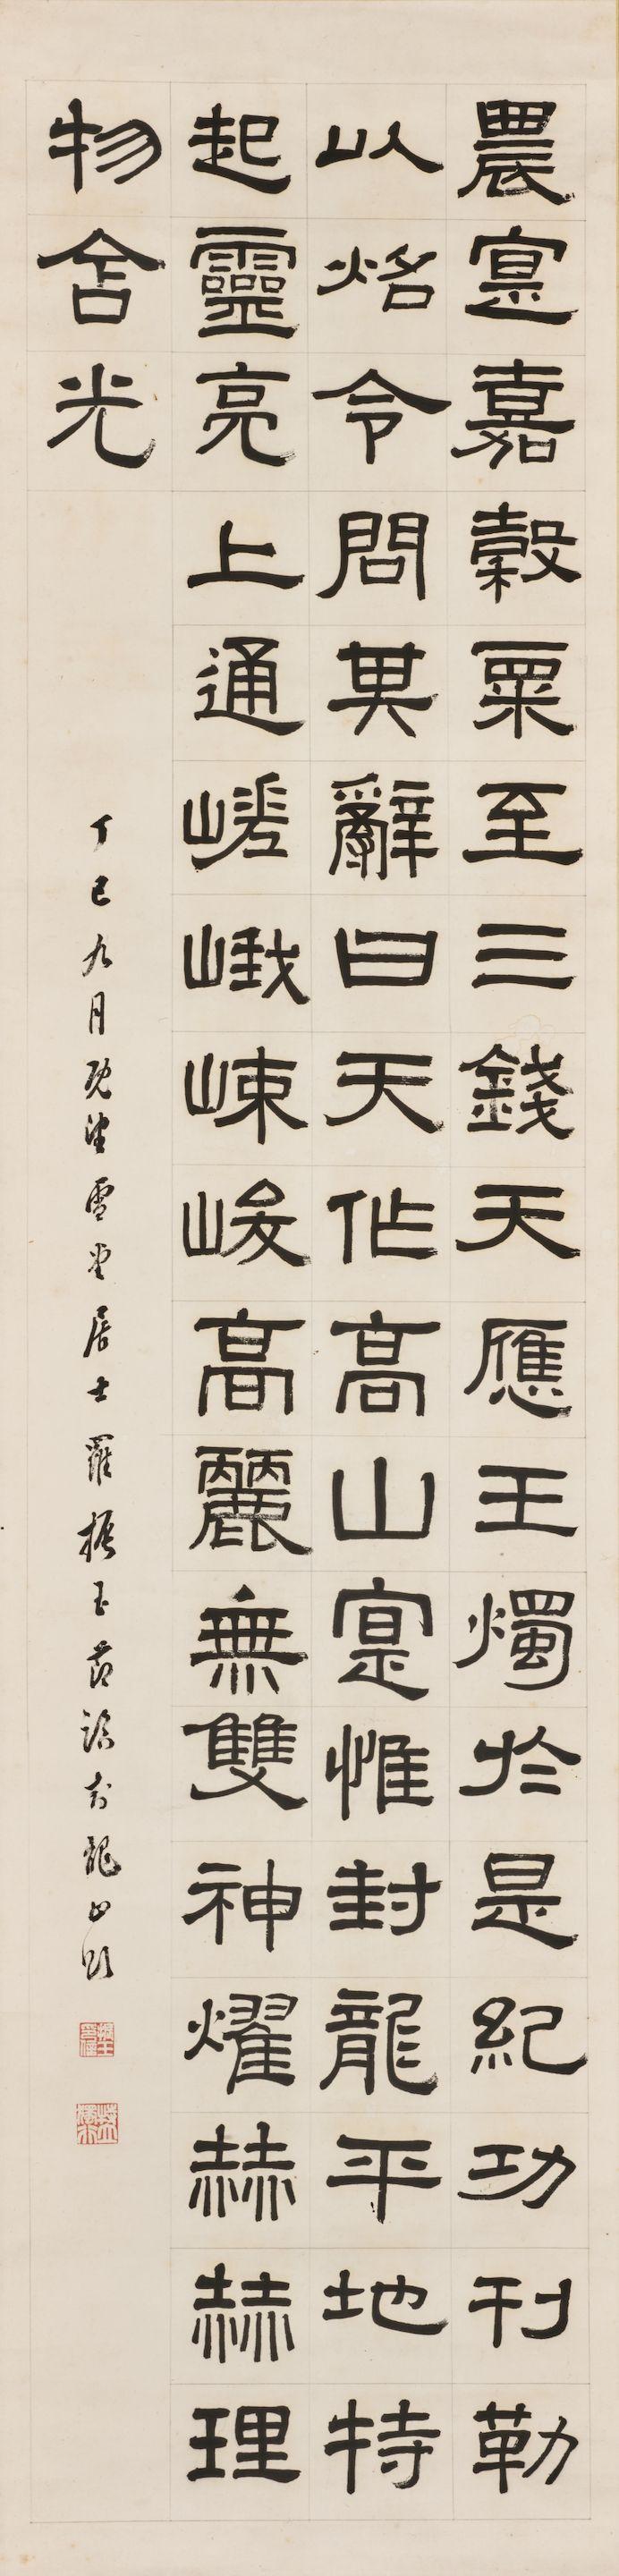 農寔嘉穀粟至三錢天應王燭於是紀功刊勒
以炤令問其辭曰天作高山寔惟封龍平地特
起靈亮上通嵯峨崠峻高麗無雙神燿赫赫理
物含光
丁巳九月既望雪堂居士羅振玉節臨封龍山頌